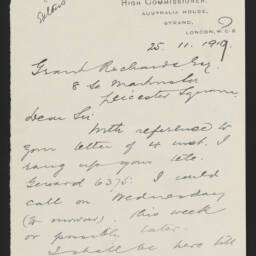 High Commissioner,
Australia House,
Strand,
London, W.C.2
25. 11. 1919.
Grant Richards Esq.
8 St Martin's St
Leicester Square
Dear Sir
With reference to
your letter of 4 inst. I
rang up your tele.
Gerrard 6375. I could
call on Wednesday
this week
or possibly later.
I shall be here till